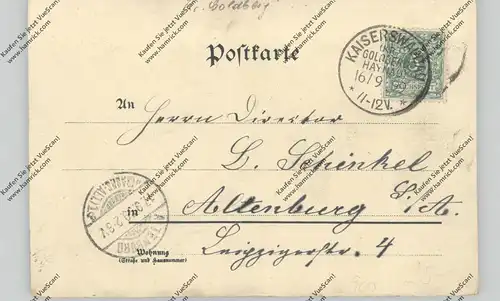 Goldberg
Postkarte
KAISERSWALDAU
GOLDBERG
HAYNAU
16/9
11-12V.
An
Herrn Director
L. Schinkel
in Altenburg S/A.
Wohnung
(Straße und Hausnummer)
Leipzigerstr. 4
ALTENBURG
Kaufen Sie jetzt VueScan!
www.hamrick.com